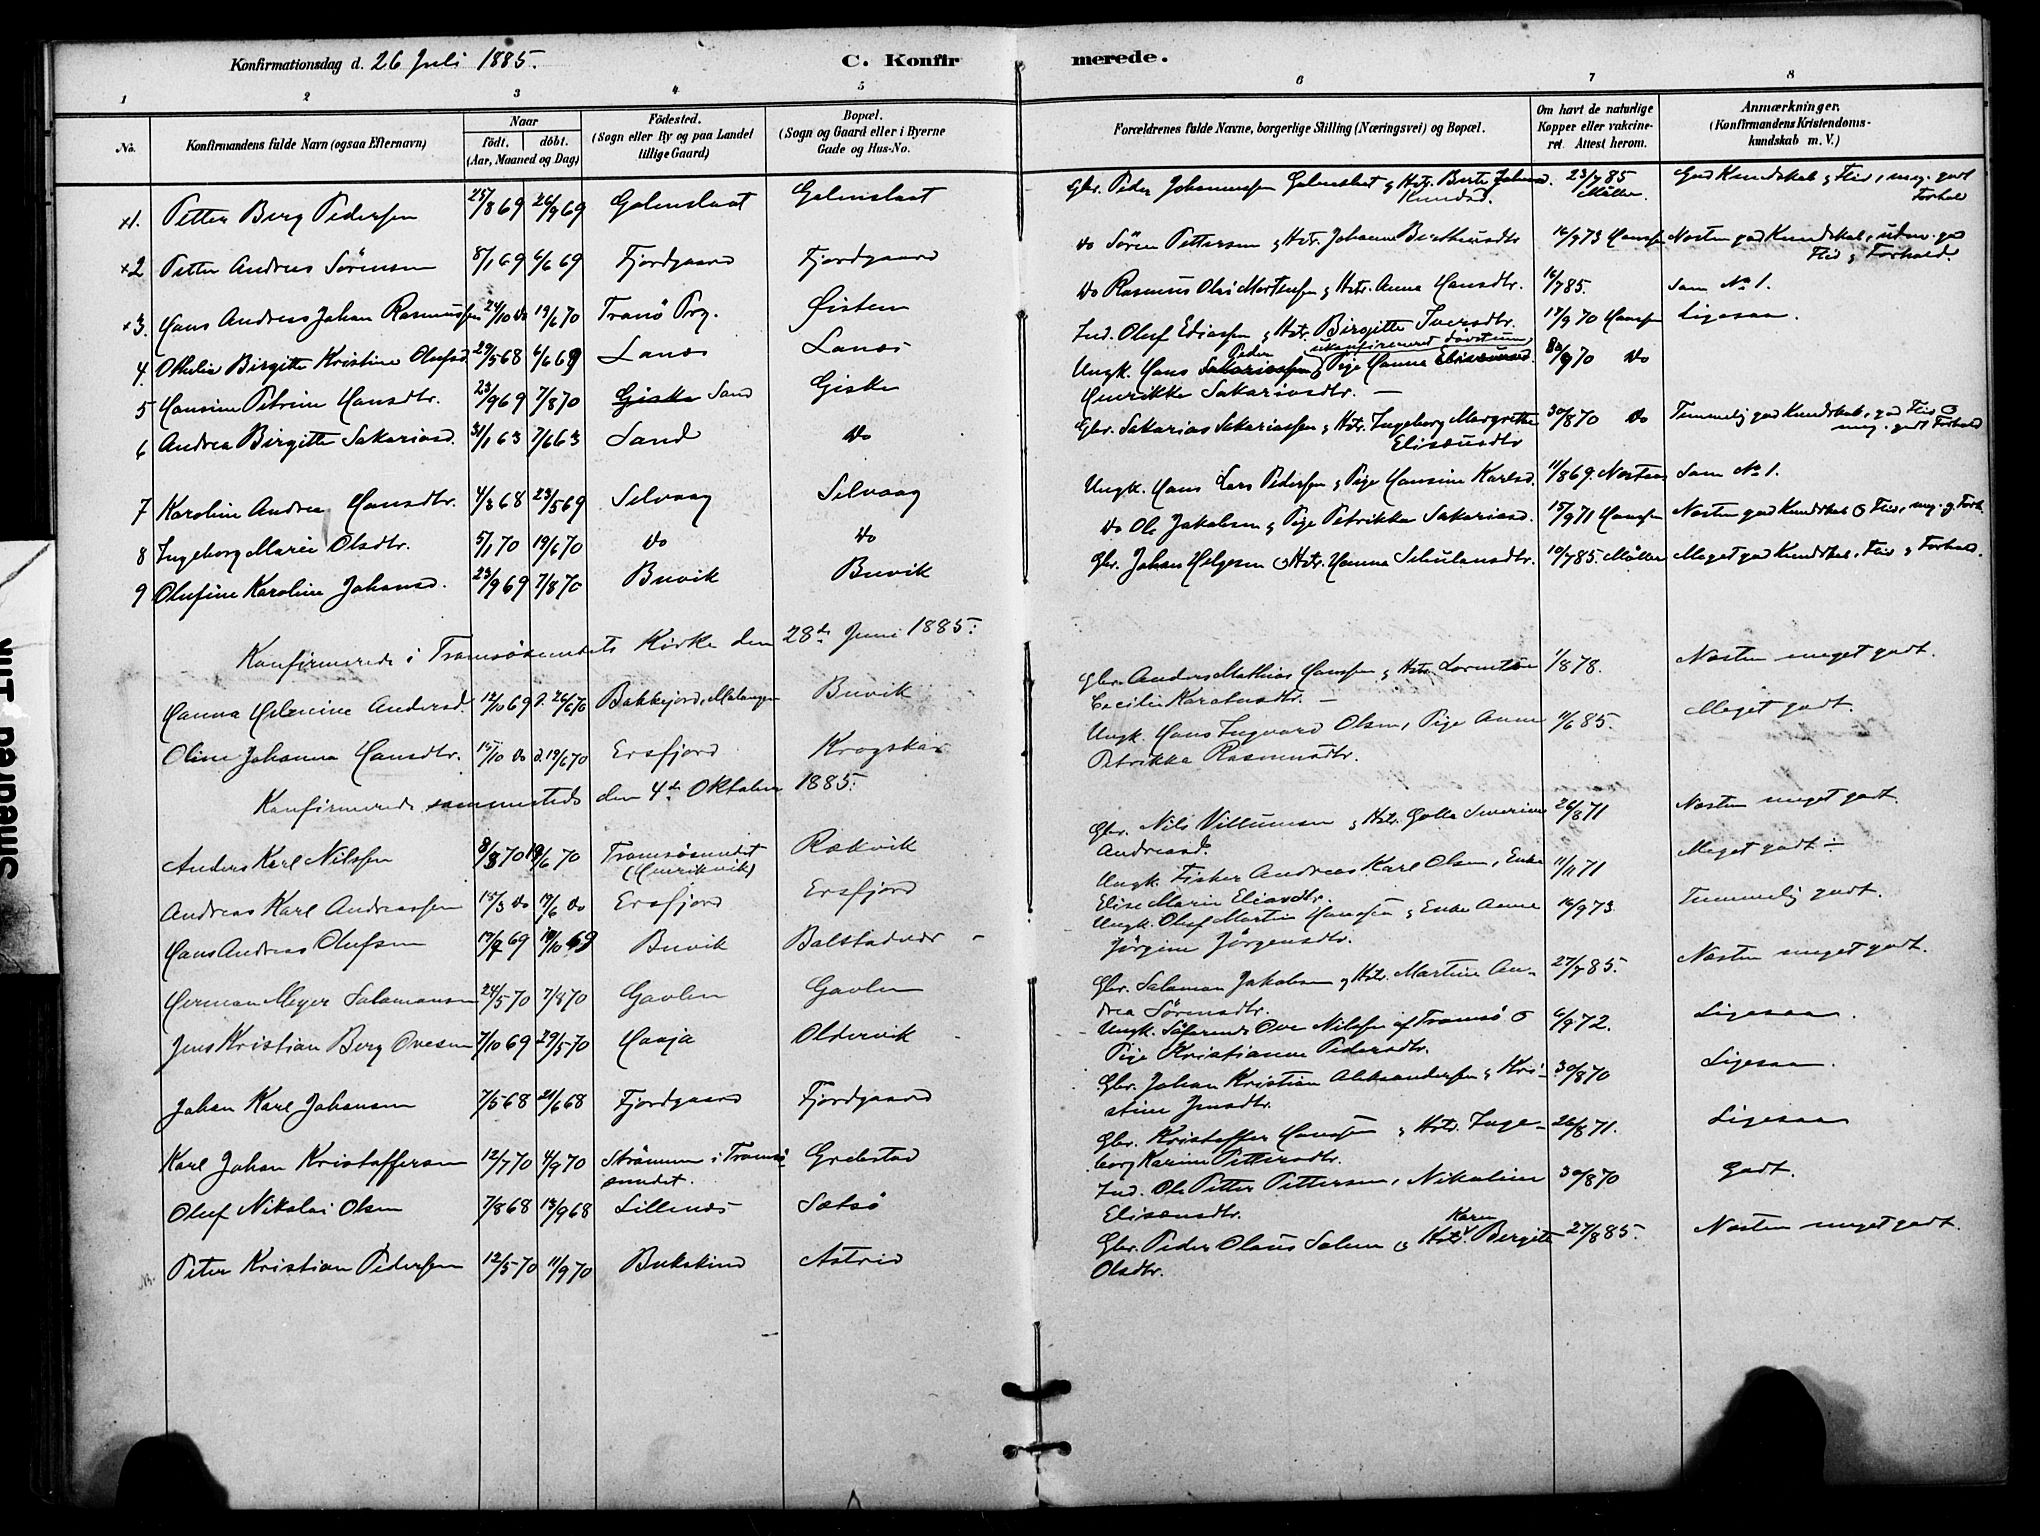 Konfirmationsdag d. 26 Juli 1885.
C. Konfirmerede.
1 2 3 4 5 6 7 8
No.
Konfirmandens fulde Navn (ogsaa Efternavn)
Naar
födt. döbt.
(Aar, Maaned og Dag)
Födested.
(Sogn eller By og paa Landet
tillige Gaard)
Bopæl.
(Sogn og Gaard eller i Byerne
Gade og Hus-No.
Forældrenes fulde Navne, borgerlige Stilling (Næringsvei) og Bopæl.
Om havt de naturlige
Kopper eller vakcine-
ret. Attest herom.
Anmærkninger,
(Konfirmandens Kristendoms-
kundskab m. V.)
x1. Petter Berg Pedersen 25/8 69 26/9 69 Golenslaat Golenslaat Gbr. Peder Johannessen Golenslaat & Hstr. Berte 23/7 85 God Kundskab & Flid, meg. godt
Knudsd. Müller. Forhold
x2 Petter Andreas Sörensen 8/1 69 6/6 69 Fjordgaard Fjordgaard do Sören Pettersen & Hstr. Johanna 16/9 73 Hanssen Næsten god Kundskab, udm. god
Flid & Forhold.
x3. Hans Andreas Johan Rasmussen 24/10 do 19/6 70 Tranö Prg. Øisten do Rasmus Olai Mortensen & Hstr. Anna Hansdtr. 16/7 85. Som No 1.
4. Othelia Birgitte Kristine Olufsd. 29/5 68 6/6 69 Lanæs Lanæs Ind. Oluf Ediassen & Hstr. Birgitte Iversdtr. 17/9 70 Hanssen Ligesaa.
5 Hansine Petrine Hansdtr. 23/9 69 7/8 70 Giska Sand Giska Ungk. Hans Peder Sakariassen & Pige Hanna Elisæusd. 30/8 70 do
Henrikke Sakariasdtr. —
6 Andrea Birgitte Sakariasd. 31/1 63 7/6 63 Sand do Gbr. Sakarias Sakariassen & Hstr. Ingeborg Margrethe 30/8 70 do Temmelig god Kundskab, god Flid &
Elisæusdtr meg. godt Forhold
7 Karoline Andrea Hansdtr. 4/3 68 23/5 69 Selvaag Selvaag Ungk. Hans Lars Pedersen & Pige Hansine Karlsd. 11/8 69. Som No 1.
8 Ingeborg Marie Olsdtr. 5/1 70 19/6 70 do do do Ole Jakobsen & Pige Petrikke Sakariasd. 15/9 71 Hanssen Næsten god Kundskab & Flid, meg. g. Forh.
9 Olufine Karoline Johansd. 23/9 69 7/8 70 Buvik Buvik Gbr. Johan Helgesen & Hstr. Hanna 10/7 85 Müller Meget god Kundskab, Flid & Forhold.
Konfirmerede i Tromsösundets Kirke den 28de Juni 1885:
Hanna Helmine Andersd. 12/10 69 d. 26/6 70 Bakkejord, Malangen Buvik Gbr. Anders Mathias Hanssen & Hstr. Lorentse 1/8 78. Næsten meget godt.
Cecilie —
Oline Johanna Hansdtr. 15/10 do d. 19/6 70 Ersfjord Krogskar Ungk. Hans Ingvard Olsen, Pige Anne 11/6 85. Meget godt.
Petrikka Rasmusdtr.
Konfirmerede sammesteds den 4de Oktober 1885:
Anders Karl Nilssen 8/3 70 19/6 70 Tromsösundet Rækvik Gbr. Nils Villumsen & Hstr. Golla Severine 26/8 71 Næsten meget godt.
(Henrikvik) Andreasd.
Andreas Karl Andreassen 15/3 do 19/6 do Ersfjord Ersfjord Ungk. Fisker Andreas Karl Olsen, Enke 11/11 71 Meget godt —
Elise Marie Eliasdtr.
Hans Andreas Olufsen 17/7 69 10/10 69 Buvik Balstadvær Ungk. Oluf Martin Hanssen & Enke Anne 16/9 73 Temmelig godt.
Jörgine Jörgensdtr.
Herman Meyer Salamonsen 24/5 70 7/8 70 Gavlen Gavlen Gbr. Salamon Jakobsen & Hstr. Martine An- 27/7 85. Næsten meget godt.
drea Sörensdtr.
Jens Kristian Berg Ovesen 7/10 69 29/5 70 Haaja Oldervik Ungk. Söfarende Ove Nilssen af Tromsö & 6/9 72. Ligesaa.
Pige Kristianne Pedersdtr.
Johan Karl Johansen 7/5 68 21/6 68 Fjordgaard Fjordgaard Gbr. Johan Kristian Aleksandersen & Kri- 30/8 70 Ligesaa.
stine Jensdtr.
Karl Johan Kristoffersen 12/7 70 4/9 70 Strömmen i Tromsö- Grebstad Gbr. Kristoffer Hanssen & Hstr. Inge- 26/8 71. Ligesaa
sundet. borg Karine Pettersdtr.
Oluf Nikolai Olsen 7/8 68 13/9 68 Lillenæs Sætsö Ind. Ole Petter Pettersen, Nikoline 30/8 70 Godt.
Elisæusdtr.
Peter Kristian Pedersen 12/5 70 11/9 70 Bukskind Astrid Gbr. Peder Olaus Solem & Hstr. Karen Bergitte 27/8 85. Næsten meget godt.
Olsdtr.